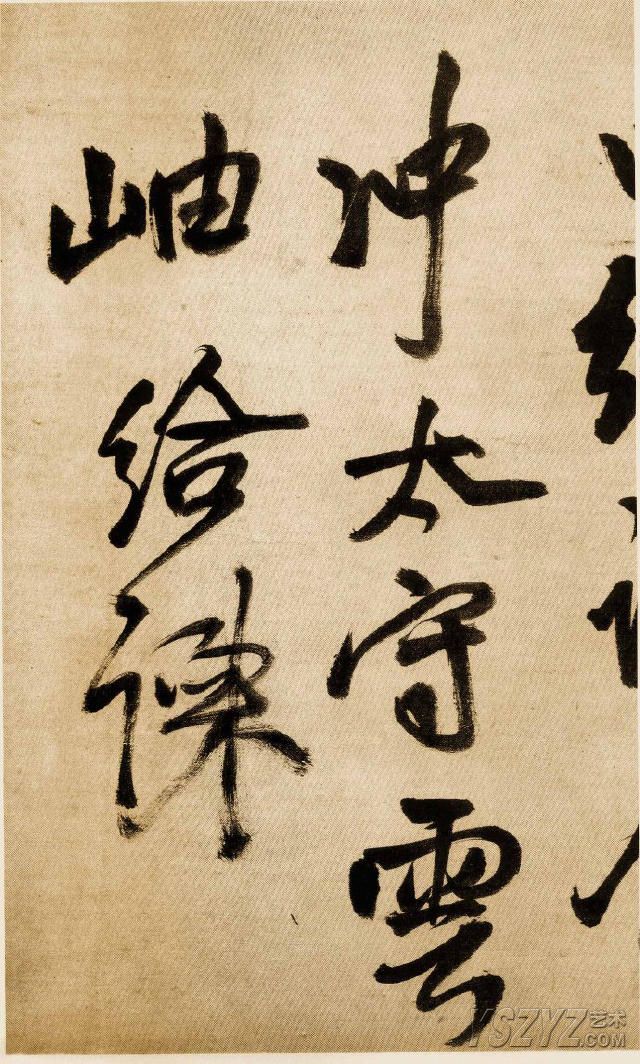 冲太守雲
岫給諫
YSZYZ艺术.COM